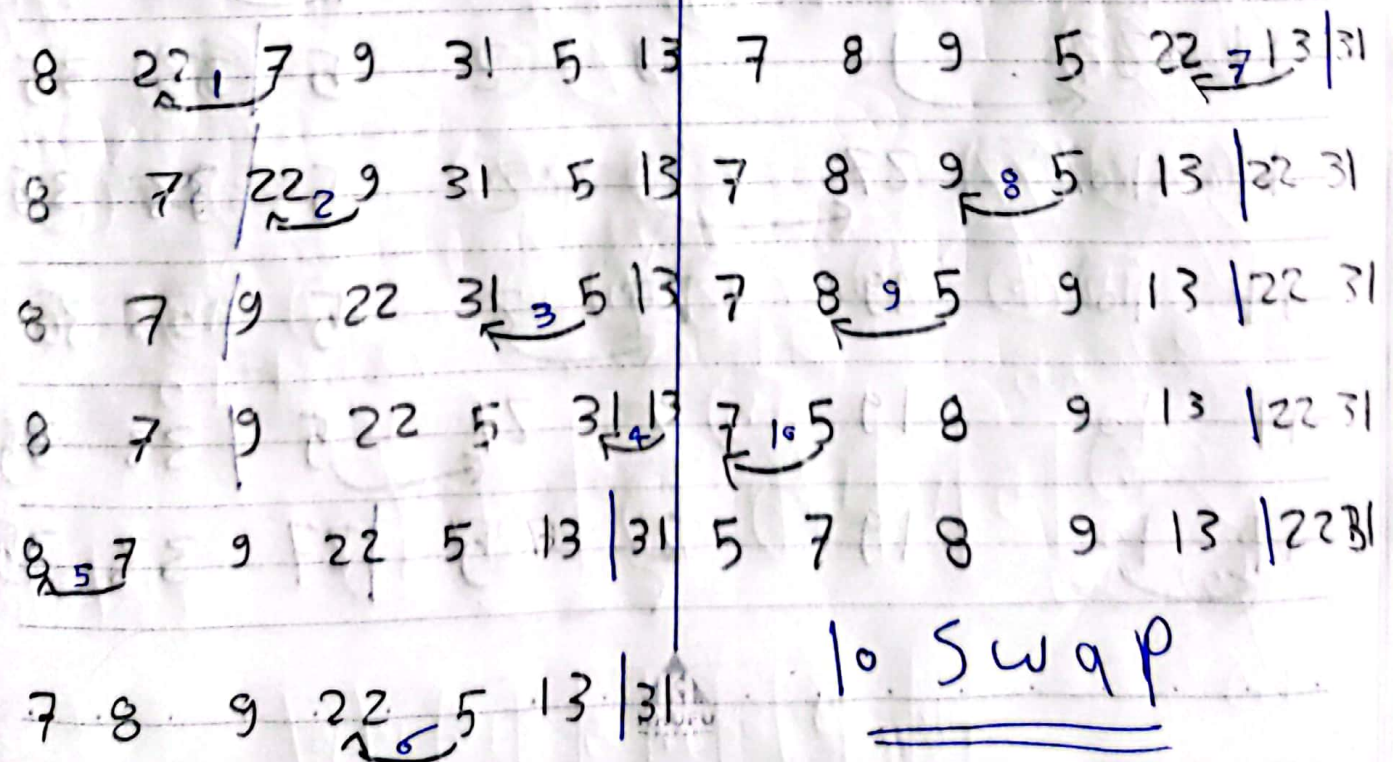 8 22 1 7 9 31 5 13
8 7 22 2 9 31 5 13
8 7 9 22 31 3 5 13
8 7 9 22 5 31 4 13
8 5 7 9 22 5 13 | 31
7 8 9 22 6 5 13 | 31
7 8 9 5 22 7 13 | 31
7 8 9 8 5 13 | 22 31
7 8 9 5 9 13 | 22 31
7 10 5 8 9 13 | 22 31
5 7 8 9 13 | 22 31
10 Swap